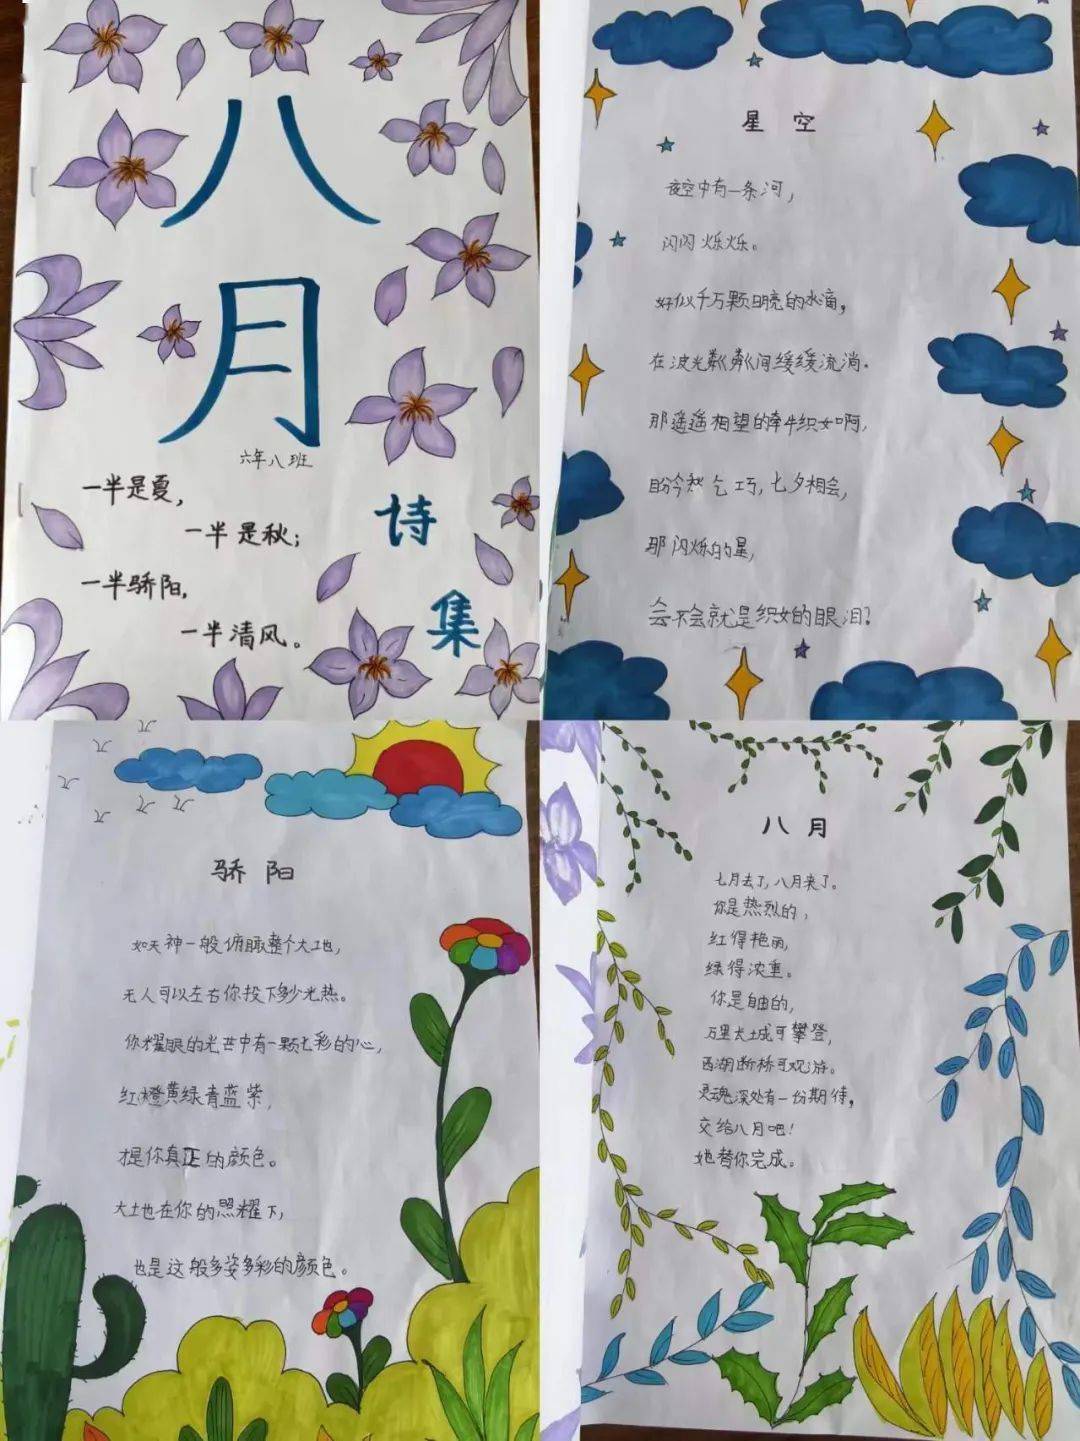 八月
六年八班
一半是夏，
一半是秋；
一半骄阳，
一半清风。
诗集
星空
夜空中有一条河，
闪闪烁烁。
好似千万颗明亮的水滴，
在波光粼粼间缓缓流淌。
那遥遥相望的牵牛织女啊，
盼今秋乞巧，七夕相会，
那闪烁的星，
会不会就是织女的眼泪？
骄阳
如天神一般俯瞰整个大地，
无人可以左右你投下多少光热。
你耀眼的光芒中有一颗七彩的心，
红橙黄绿青蓝紫，
才是你真正的颜色。
大地在你的照耀下，
也是这般多姿多彩的颜色。
八月
七月去了，八月来了。
你是热烈的，
红得艳丽，
绿得浓重。
你是自由的，
万里长城可攀登，
西湖断桥可观游。
灵魂深处有一份期待，
交给八月吧！
她替你完成。